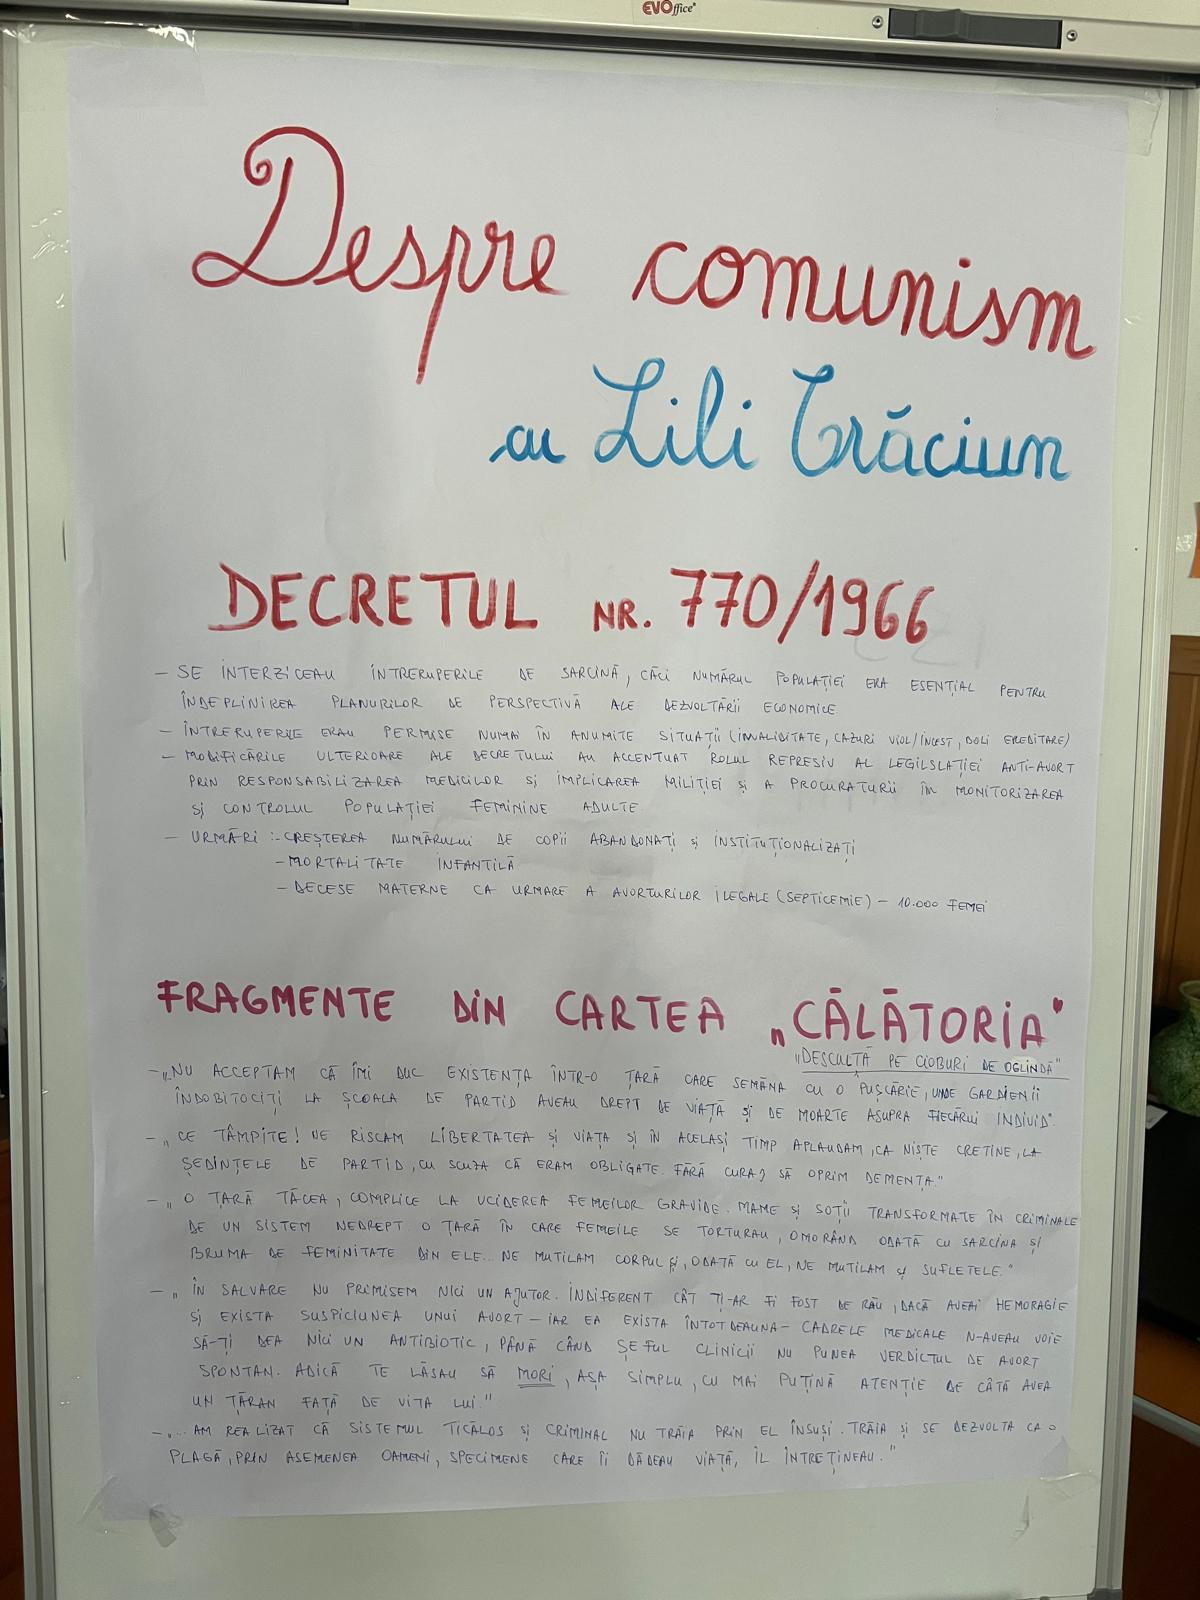 EVOffice
Despre comunism
cu Lili Crăciun
DECRETUL NR. 770/1966
– SE INTERZICEAU ÎNTRERUPERILE DE SARCINĂ, CĂCI NUMĂRUL POPULAȚIEI ERA ESENȚIAL PENTRU
ÎNDEPLINIREA PLANURILOR DE PERSPECTIVĂ ALE DEZVOLTĂRII ECONOMICE
– ÎNTRERUPERILE ERAU PERMISE NUMAI ÎN ANUMITE SITUAȚII (INVALIDITATE, CAZURI VIOL/INCEST, BOLI EREDITARE)
– MODIFICĂRILE ULTERIOARE ALE DECRETULUI AU ACCENTUAT ROLUL REPRESIV AL LEGILSLAȚIEI ANTI-AVORT
PRIN RESPONSABILIZAREA MEDICILOR și IMPLICAREA MILIȚIEI și A PROCURATURII ÎN MONITORIZAREA
și CONTROLUL POPULAȚIEI FEMININE ADULTE
– URMĂRI :- CREȘTEREA NUMĂRULUI DE COPII ABANDONAȚI și INSTITUȚIONALIZAȚI
– MORTALITATE INFANTILĂ
– DECESE MATERNE CA URMARE A AVORTURILOR ILEGALE (SEPTICEMIE) – 10.000 FEMEI
FRAGMENTE DIN CARTEA „CĂLĂTORIA"
„DESCULȚĂ PE CIOBURI DE OGLINDĂ"
– „NU ACCEPTAM CĂ ÎMI DUC EXISTENȚA ÎNTR-O ȚARĂ CARE SEMĂNA CU O PUȘCĂRIE, UNDE GARDIENII
ÎNDOBITOCIȚI LA ȘCOALA DE PARTID AVEAU DREPT DE VIAȚĂ și DE MOARTE ASUPRA FIECĂRUI INDIVID".
– „CE TÂMPITE! NE RISCAM LIBERTATEA și VIAȚA și ÎN ACELAȘI TIMP APLAUDAM, CA NIȘTE CRETINE, LA
ȘEDINȚELE DE PARTID, CU SCUZA CĂ ERAM OBLIGATE. FĂRĂ CURAJ SĂ OPRIM DEMENȚA."
– „O ȚARĂ TĂCEA, COMPLICE LA UCIDEREA FEMEILOR GRAVIDE. MAME și SOȚII TRANSFORMATE ÎN CRIMINALE
DE UN SISTEM NEDREPT. O ȚARĂ ÎN CARE FEMEILE SE TORTURAU, OMORÂND ODATĂ CU SARCINA și
BRUMA DE FEMINITATE DIN ELE... NE MUTILAM CORPUL și, ODATĂ CU EL, NE MUTILAM și SUFLETELE."
– „ÎN SALVARE NU PRIMISEM NICI UN AJUTOR. INDIFERENT CÂT ȚI-AR FI FOST DE RĂU, DACĂ AVEAI HEMORAGIE
și EXISTA SUSPICIUNEA UNUI AVORT – IAR EA EXISTA ÎNTOTDEAUNA – CADRELE MEDICALE N-AVEAU VOIE
SĂ-ȚI DEA NICI UN ANTIBIOTIC, PÂNĂ CÂND ȘEFUL CLINICII NU PUNEA VERDICTUL DE AVORT
SPONTAN. ADICĂ TE LĂSAU SĂ MORI, AȘA SIMPLU, CU MAI PUȚINĂ ATENȚIE DE CÂTĂ AVEA
UN ȚĂRAN FAȚĂ DE VITA LUI."
– „... AM REALIZAT CĂ SISTEMUL TICĂLOS și CRIMINAL NU TRĂIA PRIN EL ÎNSUȘI. TRĂIA și SE DEZVOLTA CA O
PLAGĂ, PRIN ASEMENEA OAMENI, SPECIMENE CARE ÎI DĂDEAU VIAȚĂ, ÎL ÎNTREȚINEAU."